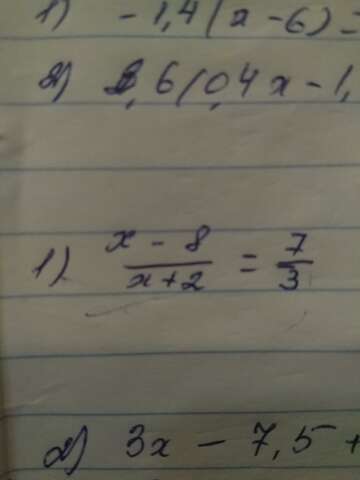 1) -1,4(x-6)=
2) 2,6(0,4x-1,
1) x-8/x+2 = 7/3
2) 3x-7,5+